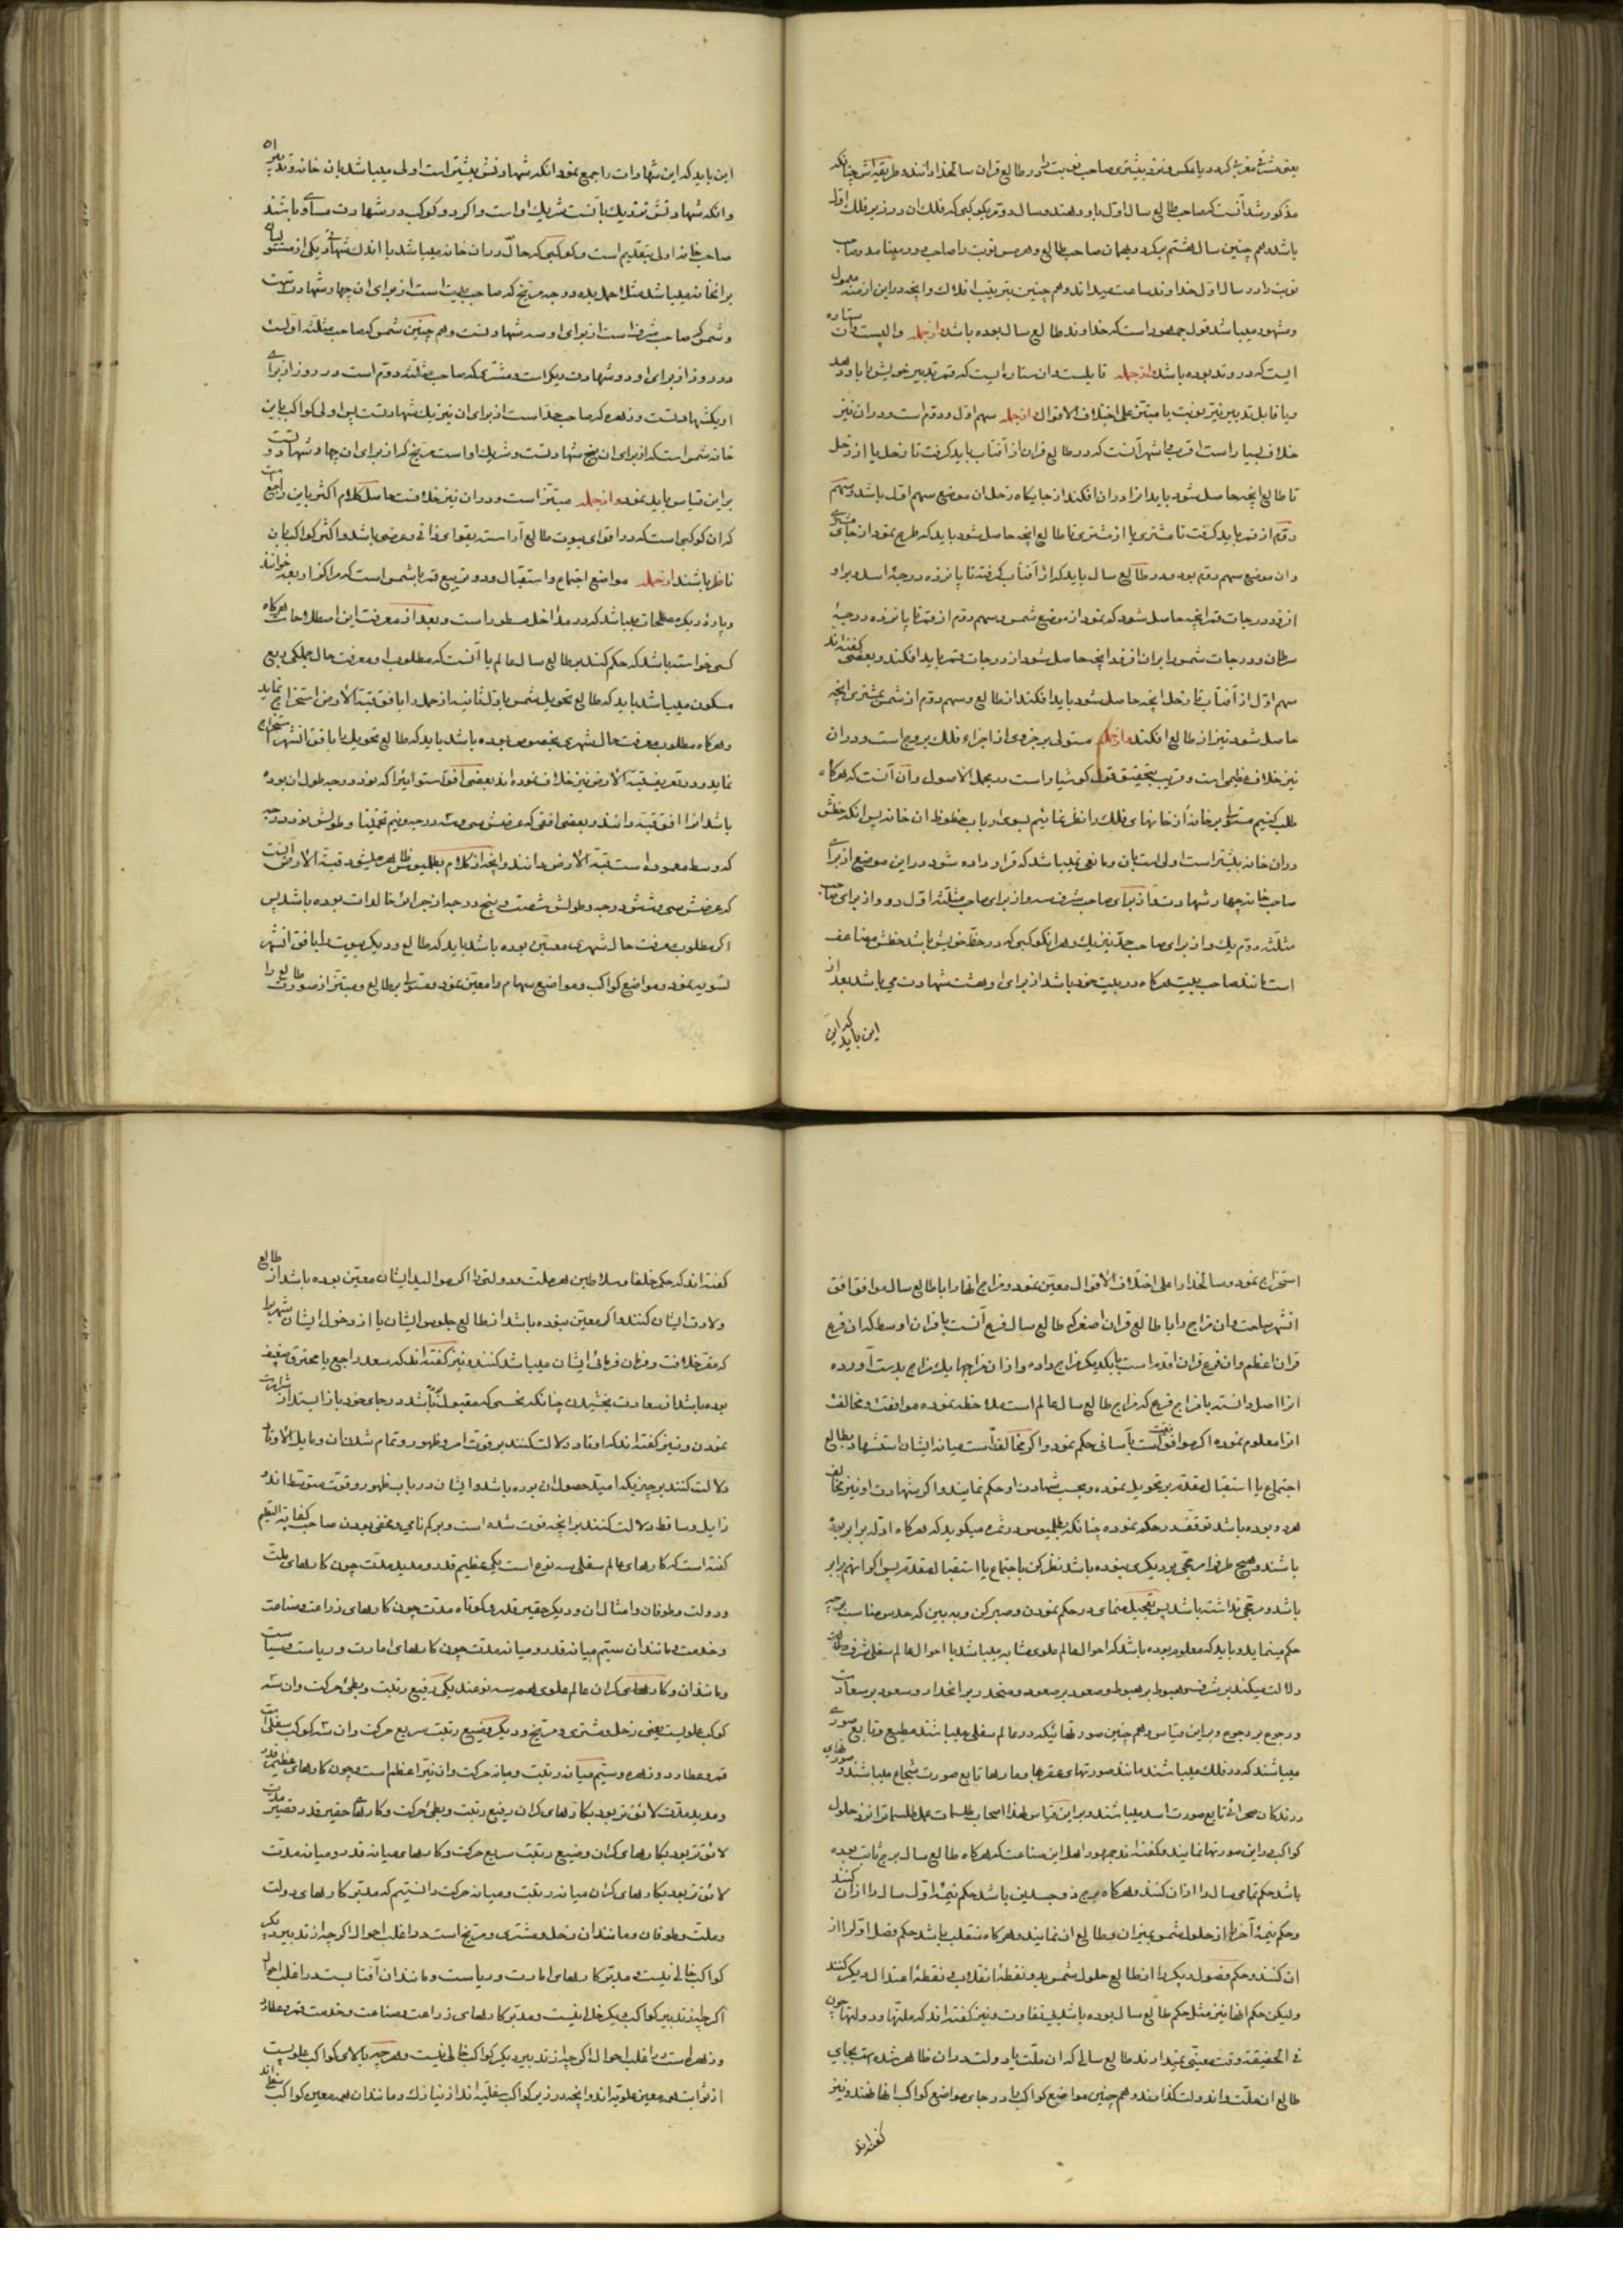 مذکور شد آنست که صاحب طالع سال اول باو دهند و سال دوم بکوکبی که فلک ان در زیر فلک اول
باشد و هم چنین سال هشتم میکردد بهمان صاحب طالع و هرمس نوبت را صاحب
نوبت را در سال اول خداوند ساعت میداند و هم چنین بترتیب افلاک و انچه در این ازمنه معمول
و مشهور میباشد قول جمهور است که خداوند طالع سال بوده باشد از جمله والیست و ان ستاره
ایست که در وتد بوده باشد از جمله قابلست و ان ستاره ایست که قمر تدبیر خویش را باو دهد
و یا قابل تدبیر نیر نوبت یا مبتز علی اختلاف الاقوال از جمله سهم اول و دوم است و در ان نیز
خلاف بسیار است اشهر آنست که در طالع قران از آفتاب باید کرفت تا زحل یا از زحل
تا طالع انچه حاصل شود باید انرا در ان افکند از جایکاه زحل ان موضع سهم اول باشد و سهم
دوم از قمر باید کرفت تا مشتری یا از مشتری تا طالع انچه حاصل شود باید که طرح نمود از جای مشتری
و ان موضع سهم دوم بود و در طالع سال باید که از آفتاب کرفته تا پانزده درجهٔ اسد و بر او
افزود درجات قمر انچه حاصل شود کم نمود از موضع شمس و سهم دوم از قمر تا پانزده درجهٔ
سرطان و درجات شمس را بران افزود انچه حاصل شود از درجات قمر باید افکند و بعضی گفته‌اند
سهم اول از آفتاب تا زحل انچه حاصل شود باید افکند از طالع و سهم دوم از شمس بمشتری انچه
حاصل شود نیز از طالع افکند از جمله مستولی بر جزوی از اجزاء فلک بروج است و در ان
نیز خلاف عظیمی است و قریب بتحقیق قول کوشیار است در مجمل الاصول و آن آنست که هرکاه
طلب کنیم مستولی بر خانهٔ از خانهای فلک را نظر نمائیم بسوی ارباب حظوظ ان خانه پس انکه حظش
در ان خانه بیشتر است اولی است بان و مانعی نمیباشد که قرار داده شود در این موضع از برای
صاحب خانه چهار شهادت و از برای صاحب شرف سه و از برای صاحب مثلثه اول دو و از برای صاحب
مثلثه دوم یک و از برای صاحب حد نیز یک و هر انکوکبی که در حظ خویش باشد حظش مضاعف
است مانند صاحب بیت هرکاه در بیت خود باشد از برای او هشت شهادت می باشد بعد از
این باید که این
این باید که این شهادات را جمع نمود انکه شهادتش بیشتر است اولی میباشد بان خانه
و انکه شهادتش نزدیک بآنست شریک او است و اکر دو کوکب در شهادت مساوی باشند
صاحب خانه اولی بتقدیم است و کوکبی که حال در ان خانه میباشد با اندک شهادتی یکی از مستولیان
بر انخانه میباشد مثلا حمل بیست درجه مریخ که صاحب بیت است از برای ان چهار شهادتست
و شمس که صاحب شرفست از برای او سه شهادتست و هم چنین شمس که صاحب مثلثه اولست
در روز از برای او دو شهادت دیکر است و مشتری که صاحب مثلثه دوم است در روز از برای
او یکشهادتست و زهره که صاحب حد است از برای ان نیز یک شهادتست پس اولی کواکب باین
خانه شمس است که از برای ان پنج شهادتست و شریک او است مریخ که از برای ان چهار شهادتست
بر این قیاس باید نمود و از جمله مبتز است و در ان نیز خلافست حاصل کلام اکثر باین راجع
که ان کوکبی است که در اقوای بیوت طالع آراسته بقوای ذاتی و عرضی باشد و اکثر کواکب بان
ناظر باشند از جمله مواضع اجتماع و استقبال و دو تربیع قمر با شمس است که مراکز اربعه خوانند
و پارهٔ دیکر مصطلحات میباشد که در مداخل مسطور است و بعد از معرفت این اصطلاحات هرکاه
کسی خواسته باشد که حکم کند بر طالع سال عالم یا آنست که مطلوب او معرفت حال جملکی ربع
مسکون میباشد باید که طالع تحویل شمس باول ثانیه از حمل را بافق قبة الارض استخراج نماید
و هرکاه مطلوب معرفت حال شهری بخصوص بوده باشد باید که طالع تحویل را بافق انشهر استخراج
نماید و در تعریف قبة الارض نیز خلاف نموده اند بعضی افق استوا نیز که نود درجه طول ان بوده
باشد انرا افق قبه دانند و بعضی افقی که عرضش سی و سه درجه و نیم تخمینا و طولش نود درجه
که وسط معموره است قبة الارض دانند و انچه از کلام بطلمیوس ظاهر میشود قبة الارض آنست
که عرضش سی و شش درجه و طولش شصت و پنج درجه از جزائر خالدات بوده باشد پس
اکر مطلوب معرفت حال شهری معین بوده باشد باید که طالع و دیکر بیوت را بافق انشهر
تسویه نمود و مواضع کواکب و مواضع سهام را معین نمود و مستولی بر طالع و مبتز از صورت طالع را
استخراج نمود و سالخدا را علی اختلاف الاقوال معین نمود و مزاج انها را با طالع سال موافق افق
انشهر ساخت و ان مزاج را با طالع قران اصغر که طالع سال فرع آنست با قران اوسط که ان فرع
قران اعظم و ان فرع قران اقدم است با یکدیکر مزاج داده و از ان مزاجها یک مزاج بدست آورده
انرا اصل دانسته با مزاج فرع که مزاج طالع سال عالم است ملاحظه نموده موافقت و مخالفت
انرا معلوم نموده اکر موافقست بآسانی حکم نمود و اکر مخالفت است میانه ایشان استشهاد بطالع
اجتماع یا استقبال مقدم بر تحویل نموده و بحسب شهادت او حکم نمایند و اکر شهادت او نیز مخالف
هر دو بوده باشد توقف در حکم نموده چنانکه بطلمیوس در ثمره میکوید که هرکاه ادله برابر بوده
باشند و هیچ طرف را مرجحی بر دیکری نبوده باشد نظر کن باجتماع یا استقبال مقدم پس اکر انهم برابر
باشد و مرجحی نداشته باشد پس تعجیل منمای در حکم نمودن و صبر کن و ببین که حدس مناسب بچه
حکم مینماید و باید که معلوم بوده باشد که احوال عالم علوی مشابه میباشد با احوال عالم سفلی
دلالت میکند بر شرف و هبوط بر هبوط و صعود بر صعود و منحدر بر انحدار و سعود بر سعادت
و رجوع بر رجوع و بر این قیاس و هم چنین صورتهائیکه در عالم سفلی میباشند مطیع و تابع صورتهای
میباشند که در فلک میباشند مانند صورتهای عقربها و مارها تابع صورت شجاع میباشند و
درندکان صحرائی تابع صورت اسد میباشند و بر این قیاس لهذا اصحاب طلسمات عمل طلسم را از حلول
کواکب در این صورتها نمایند و کفته اند جمهور اهل این صناعت که هرکاه طالع سال برج ثابت بوده
باشد حکم تمامی سال را از ان کنند و هرکاه برج ذو جسدین باشد حکم نیمهٔ اول سال را از ان کنند
و حکم نیمهٔ آخر را از حلول شمس بمیزان و طالع ان نمایند و هرکاه منقلب باشد حکم فصل اول را از
ان کنند و حکم فصول دیکر را از طالع حلول شمس بدو نقطهٔ انقلاب و نقطهٔ اعتدال دیکر کنند
و لیکن حکم انها نیز مثل حکم طالع سال بوده باشد بی تفاوت و نیز کفته اند که ملتها و دولتها چون
فی الحقیقه وقت معینی نمیدارند طالع سالی که ان ملت یا دولت در ان ظاهر شده است بجای
طالع ان ملت و اندولت کذارند و هم چنین مواضع کواکب را در جای مواضع کواکب انها نهند و نیز
کفته اند
کفته اند که حکم خلفا و سلاطین هر ملت و دولتی را اکر موالید ایشان معین بوده باشد از طالع
ولادت ایشان کنند و اکر معین نبوده باشد از طالع جلوس ایشان یا از دخول ایشان بشهریکه
که مقر خلافت و مکان فرمانی ایشان میباشد کنند و نیز کفته اند که سعد راجع یا محترق ضعیف
بوده باشد از سعادت بخشیدن چنانکه نحسی که مقبول باشد در جای خود باز ایستد از شرارت
نمودن و نیز کفته اند که اوتاد دلالت کنند بر قوت امر و ظهور و تمام شدن ان و مایل الاوتاد
دلالت کنند بر چیزیکه امید حصول ان بوده باشد و ایشان در باب ظهور و قوت متوسط اند
زایل و ساقط دلالت کنند بر انچه فوت شده است و بر کم نامی و مخفی بودن صاحب کفایة التعلیم
کفته است که کارهای عالم سفلی سه نوع است یکی عظیم قدر و مدید مدت چون کارهای ملت
و دولت و طوفان و امثال ان و دیکر حقیر قدر و کوتاه مدت چون کارهای زراعت و صناعت
و خدمت و مانند ان سیم میانه قدر و میانه مدت چون کارهای امارت و ریاست و سیاست
و مانند ان و کارکنان عالم علوی هم سه نوعند یکی رفیع رتبت و بطئ حرکت و ان سه
کوکب علویست یعنی زحل و مشتری و مریخ و دیکر وضیع رتبت سریع حرکت و ان سه کوکب سفلیست
قمر و عطارد و زهره و سیم میانه رتبت و میانه حرکت و ان نیر اعظم است و چون کارهای عظیم قدر
و مدید مدت لائق تر بود بکارهای کران رفیع رتبت و بطئ حرکت و کارهای حقیر قدر قصیر مدت
لائق تر بود بکارهای کران وضیع رتبت سریع حرکت و کارهای میانه قدر و میانه مدت
لائق تر بود بکارهای کران میانه رتبت و میانه حرکت دانستیم که مدبر کارهای دولت
و ملت و طوفان و مانند ان زحل و مشتری و مریخ است در اغلب احوال اکرچه از تدبیر دیکر
کواکب خالی نیست و مدبر کارهای امارت و ریاست و مانند ان آفتابست در اغلب احوال
اکرچه از تدبیر کواکب دیکر خالی نیست و مدبر کارهای زراعت و صناعت و خدمت قمر و عطارد
و زهره است در اغلب احوال اکرچه از تدبیر دیکر کواکب خالی نیست و هرچه بالای کواکب علویست
از ثوابت همه معین علویه اند و انچه در زیر کواکب سفلیه اند از نیازک و مانند ان همه معین کواکب سفلی اند